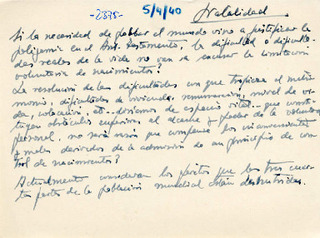 -2375-
5/4/40
Natalidad
Si la necesidad de poblar el mundo vino a justificar la
poligamia en el Ant. Testamento, la dificultad o dificulta-
des reales de la vida no van a excusar la limitación
voluntaria de nacimientos?
La resolución de las dificultades en que tropieza el matri-
monio, dificultades de vivienda, remuneración, nivel de vi-
da, educación, etc. es de espacio vital.. que
obstáculos superiores al alcance y poder de la voluntad
personal, no será más que compensar los inconvenientes
y males derivados de la admisión de un principio de con-
trol de nacimientos?
Actualmente consideran los peritos que las tres cuar-
tas partes de la población mundial están desnutridas.